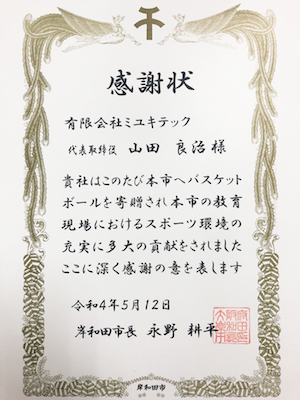 感謝状
有限会社ミユキテック
代表取締役 山田 良治様
貴社はこのたび本市へバスケット
ボールを寄贈され本市の教育
現場におけるスポーツ環境の
充実に多大の貢献をされました
ここに深く感謝の意を表します
令和4年5月12日
岸和田市長 永野 耕平
岸和田市